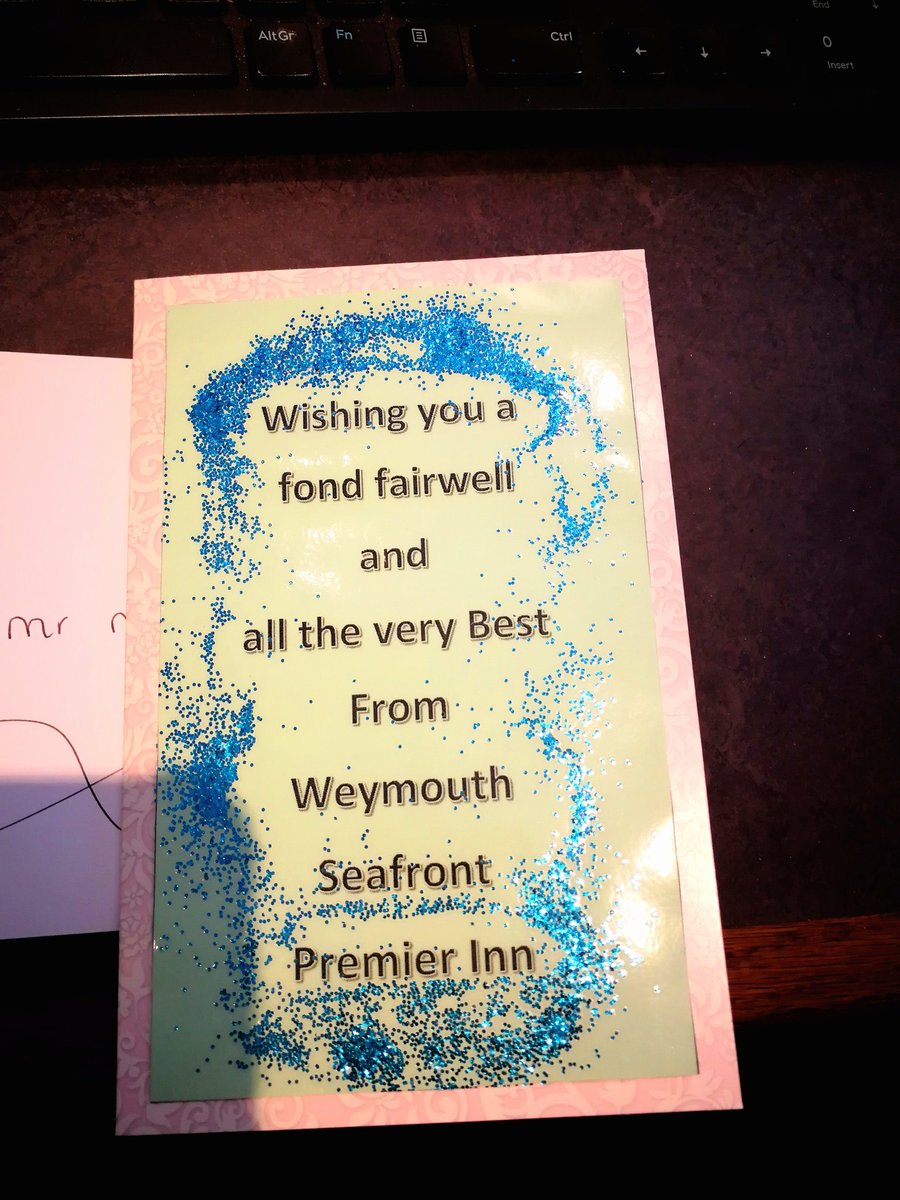 End
AltGr Fn Ctrl 0
Insert
Wishing you a
fond fairwell
and
all the very Best
From
Weymouth
Seafront
Premier Inn
mr